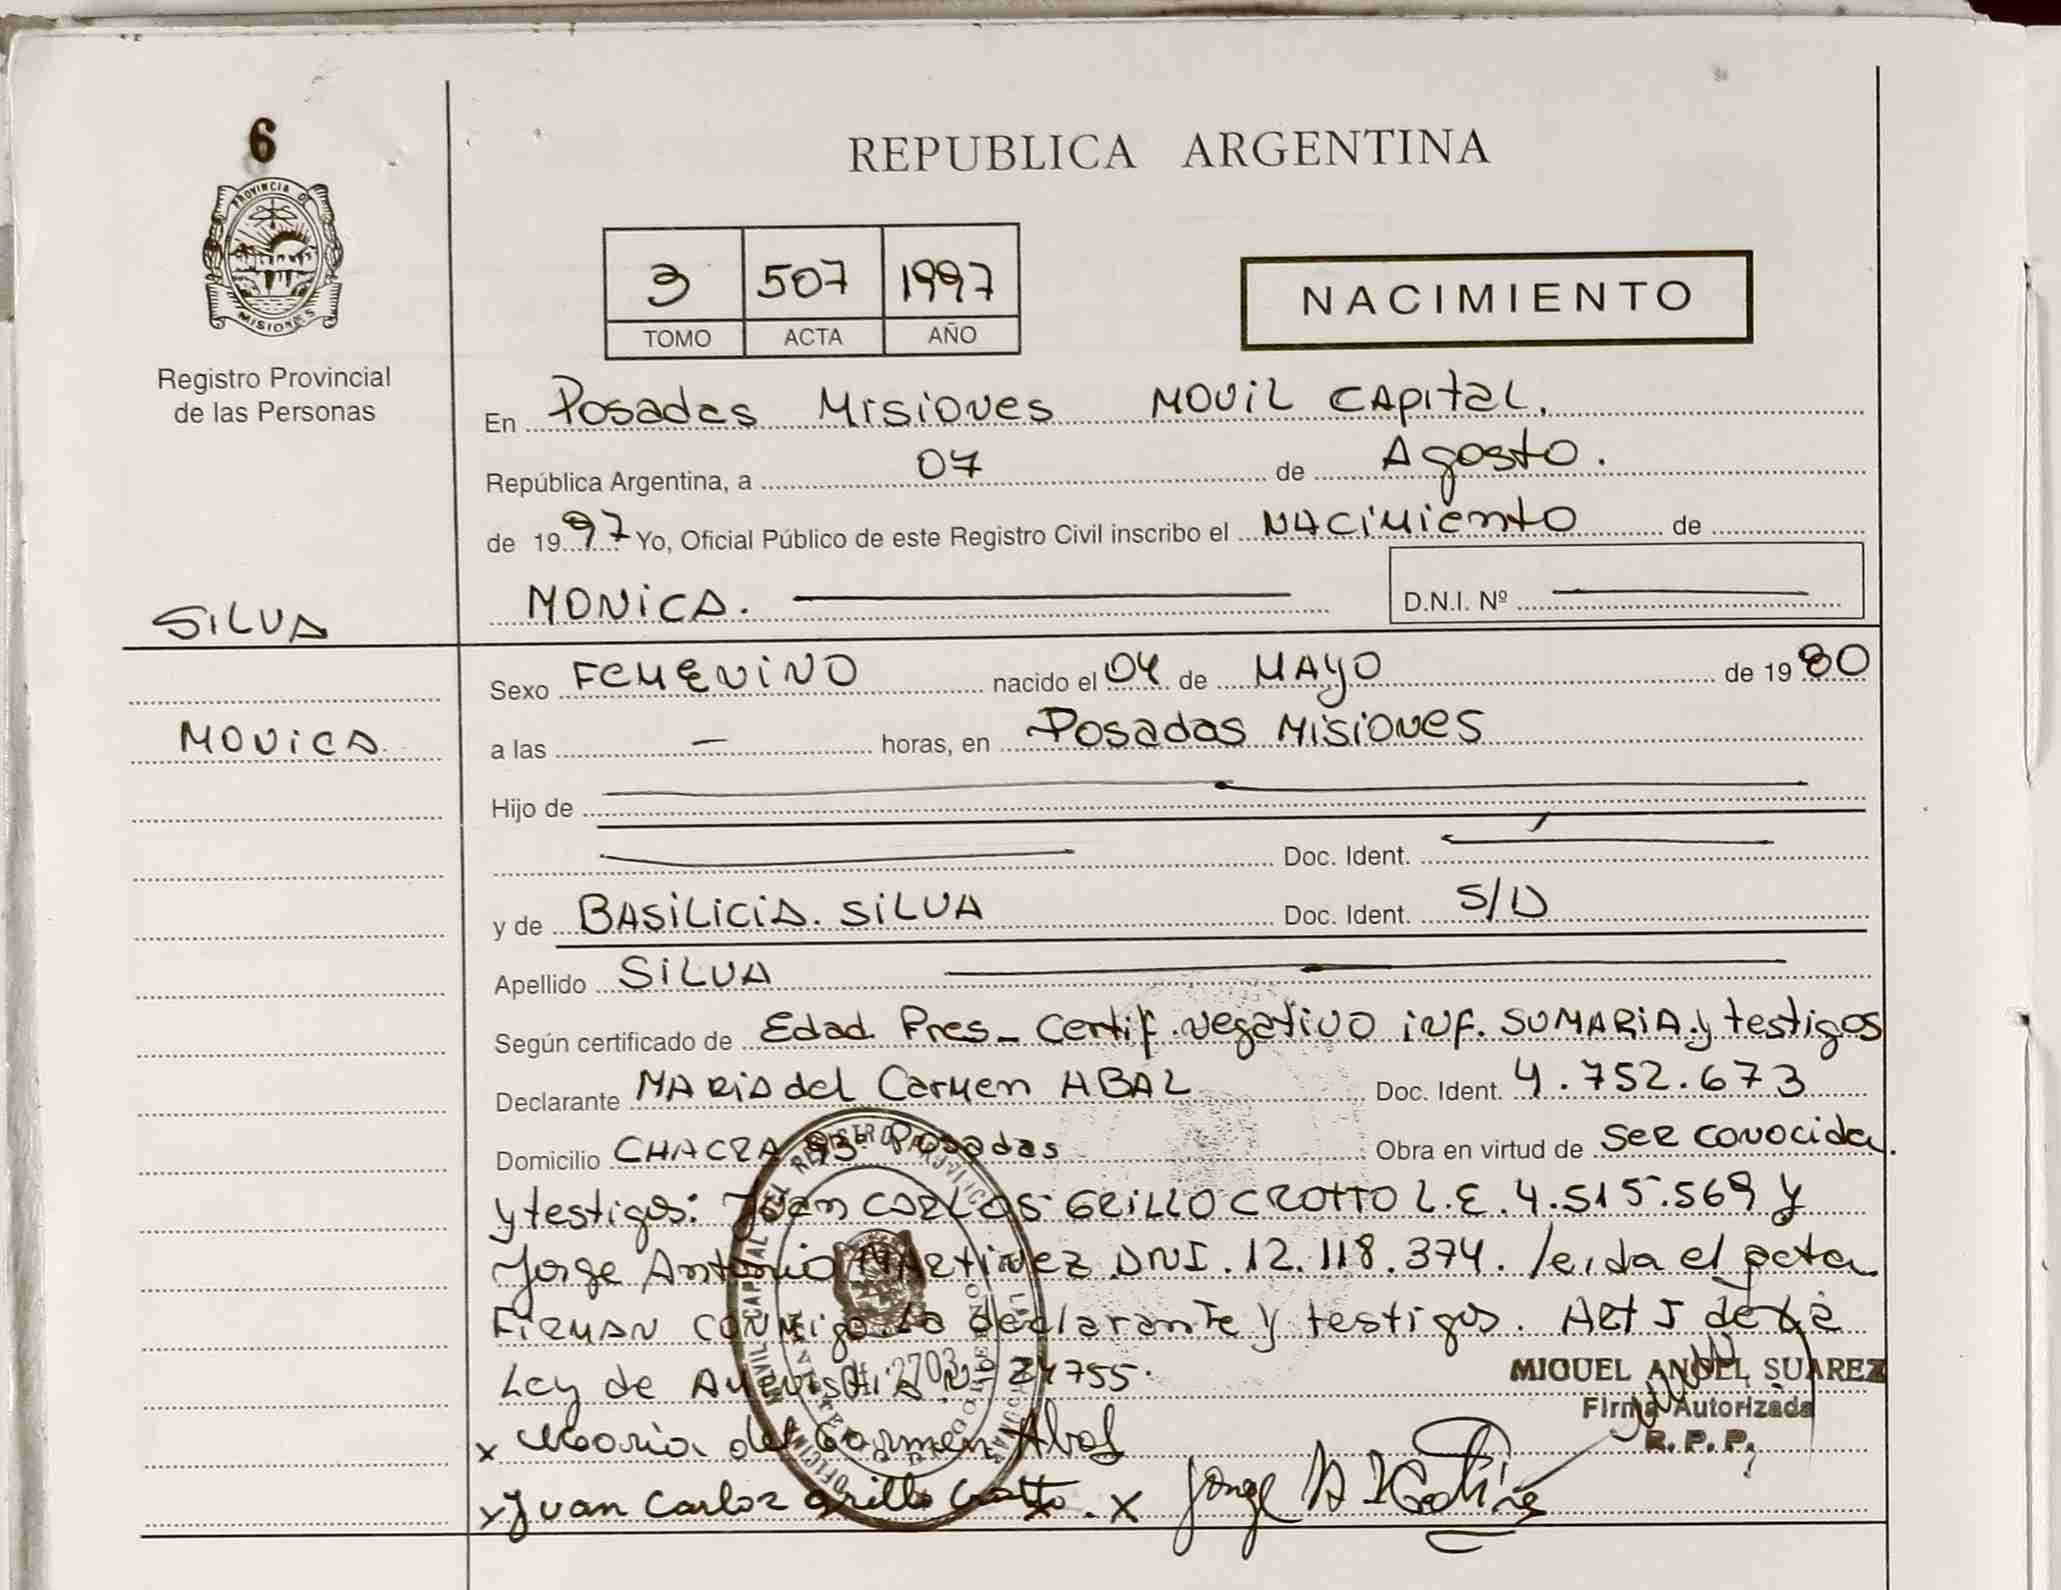 6
PROVINCIA DE
MISIONES
Registro Provincial
de las Personas
REPUBLICA ARGENTINA
3 507 1997
TOMO ACTA AÑO
NACIMIENTO
En Posadas Misiones Movil Capital.
República Argentina, a 07 de Agosto.
de 1997 Yo, Oficial Público de este Registro Civil inscribo el Nacimiento de
MONICA. D.N.I. Nº
SILVA
Sexo FEMENINO nacido el 04 de MAYO de 1980
MONICA
a las — horas, en Posadas Misiones
Hijo de
Doc. Ident.
y de BASILICIA. SILVA Doc. Ident. S/D
Apellido SILVA
Según certificado de Edad Pres_ Certif. Negativo inf. SUMARIA. y testigos
Declarante MARIA del Carmen ABAL Doc. Ident. 4.752.673
Domicilio CHACRA 93- Posadas Obra en virtud de Ser conocida.
y testigos: Juan CARLOS GRILLO CROTTO L.E. 4.515.569 y
Jorge Antonio Martinez DNI. 12.118.374. leida el acta
Firman conmigo la declarante y testigos. Art 5 de la
Ley de Amnistia Nº 24755.
MIGUEL ANGEL SUAREZ
Firma Autorizada
R. P. P.
x Maria del Carmen Abal
x Juan Carlos Grillo Crotto. x Jorge A Martinez